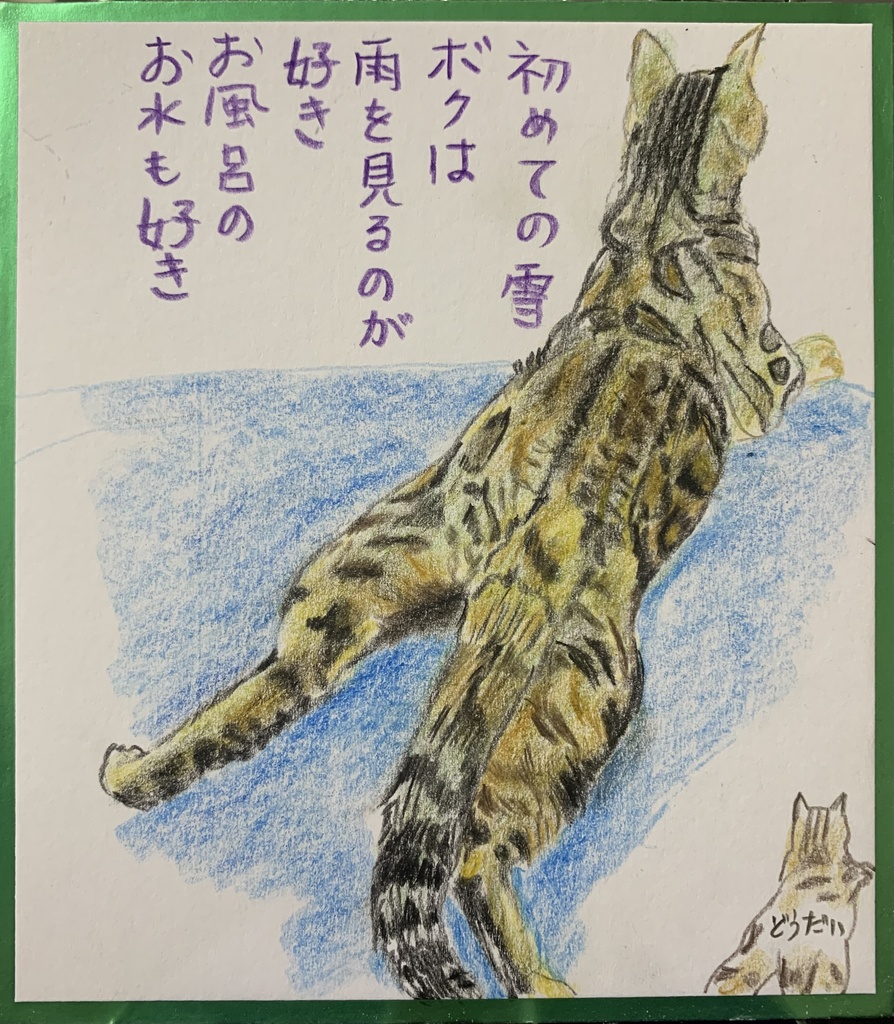 初めての雪
ボクは
雨を見るのが
好き
お風呂の
お水も好き
どうだい